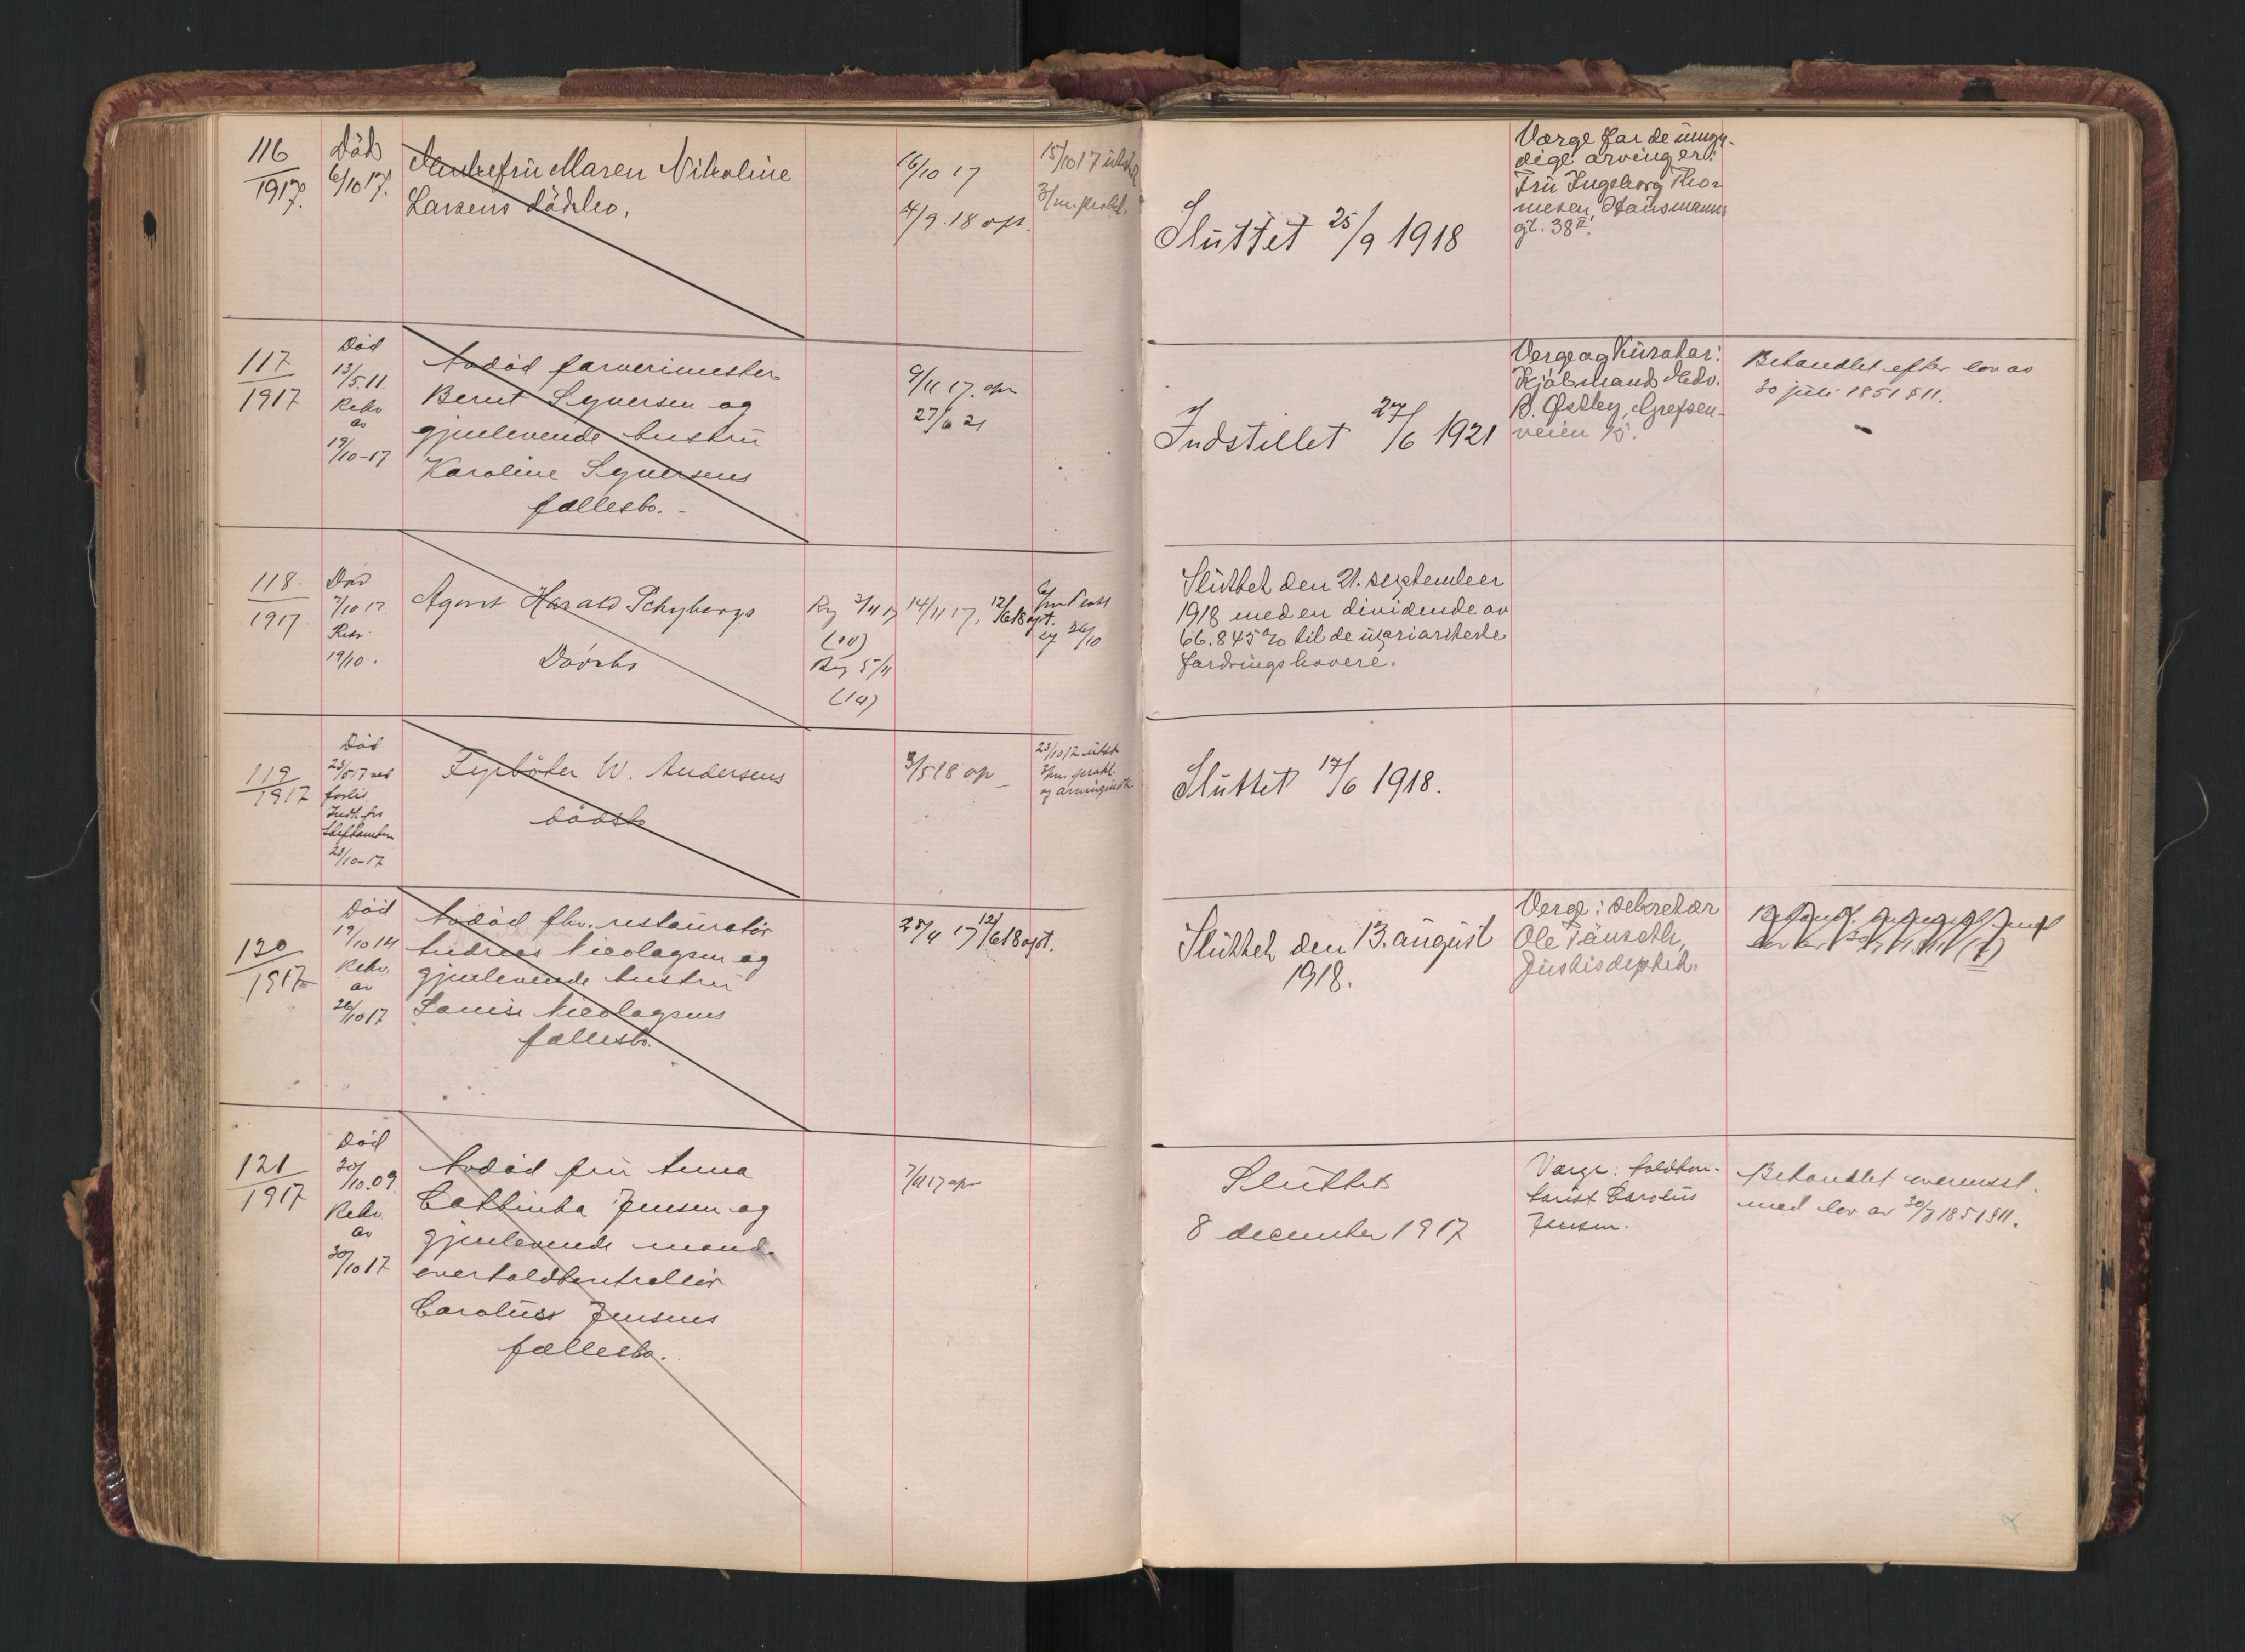 116
1917.
Död
6/10 17.
Enkefrü Maren Nikoline
Larsens dödsbo.
16/10 17
4/9.18 opt.
15/10 17 utst
3/m. prokl.
Sluttet 25/9 1918
Værge for de umyn-
dige arvinger:
Frü Ingeborg Thor-
mesen, Hausmanns
gt. 38 II.
117
1917
Död
13/5.11.
Rekv
av
19/10-17
Avdöd farverimester
Bernt Syversen og
gjenlevende hustrü
Karoline Syversens
fællesbo.-
9/11 17. opn
27/6 21
Indstillet 27/6 1921
Verge og Kürator:
Kjöbmand Edv.
B. Østby, Grefsen-
veien 15.
Behandlet efter lov av
30 juli 1851 § 11.
118.
1917.
Död
7/10 17
Rekv.
19/10.
Agent Harald Schybergs
Dödsbo
Kg 3/11 17
(10)
Kg 5/11
(10)
14/11 17, 12/6 18 opt.
og 26/10
Sluttet den 21. september
1918 med en dividende av
66.845 % til de upriviterte
fordringshavere.
119
1917
Död
23/5 17 ved
forlis
Indk. fra
Skiftesamlen
23/10-17
Fyrböter W. Andersens
dödsbo
3/5 18 op
23/10 17 utst
3/m. prokl.
og arvingindk.
Sluttet 17/6 1918.
120
1917
Död
19/10 14
Rekv.
av
26/10 17
Avdöd fhv. restauratör
Andreas Nicolaysen og
gjenlevende hustru
Louise Nicolaysens
fællesbo.
28/11 17 12/6 18 opt.
Sluttet den 13. august
1918.
Verge: sekretær
Ole Taurseth,
Justisdeptet.
121
1917
Död
20/10.09
Rekv.
av
30/10 17
Avdöd frü Anna
Cathinka Jensen og
gjenlevende mand.
overtoldkontrollör
Carolius Jensens
fællesbo.
7/11 17 opn
Sluttet
8 december 1917
Værge: toldkon-
torist Carolus
Jensen.
Behandlet overensst.
med lov av 30/7 1851 § 11.